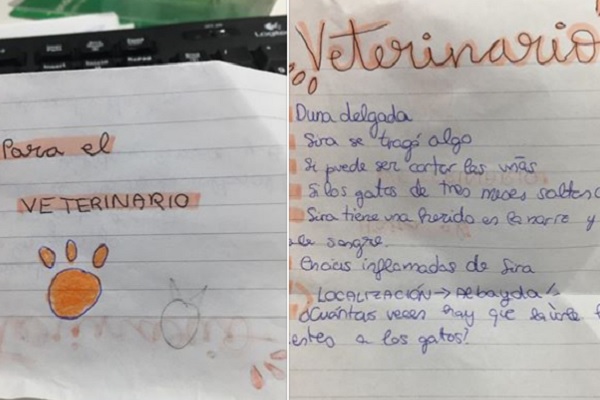 Para el
VETERINARIO
Veterinario
Duna delgada
Sira se tragó algo
Si puede ser cortar las uñas
Si los gatos de tres meses saltan
Sira tiene una herida en la nariz y
sangre.
Encias inflamadas de Sira
LOCALIZACIÓN → Albayda
¿Cuántas veces hay que
a los gatos?